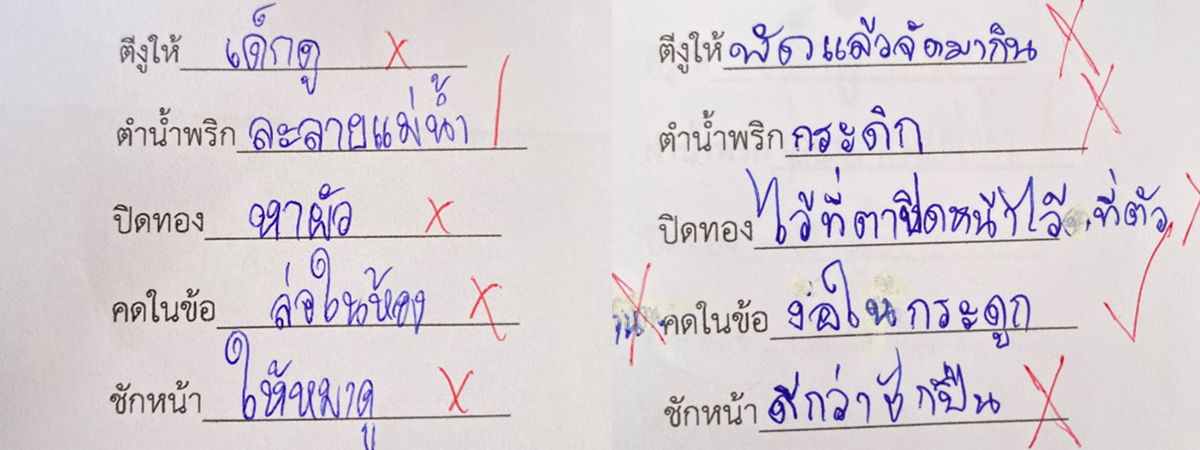 ตีงูให้ เด็กดู
ตำน้ำพริก ละลายแม่น้ำ
ปิดทอง หาผัว
คดในข้อ ล่อในห้อง
ชักหน้า ให้หมาดู
ตีงูให้ พัดแล้วจัดมากิน
ตำน้ำพริก กระดิก
ปิดทอง ไว้ที่ตาปิดหนี้ไว้ ที่ตัว
คดในข้อ งอในกระดูก
ชักหน้า ดีกว่าชักปืน